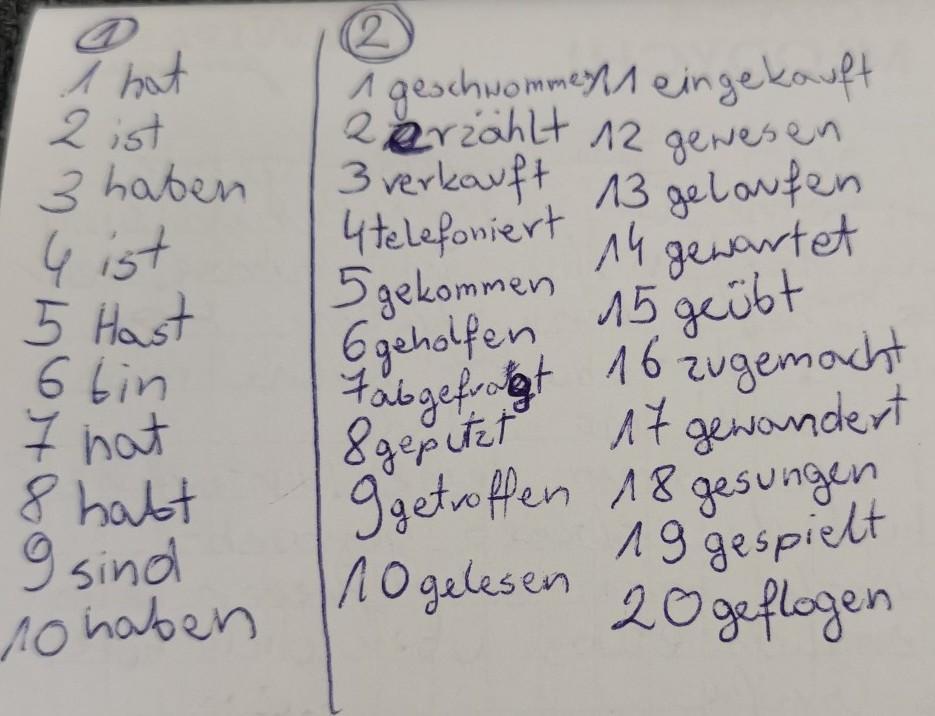 1
1 hat
2 ist
3 haben
4 ist
5 Hast
6 bin
7 hat
8 habt
9 sind
10 haben
2
1 geschwommen
2 erzählt
3 verkauft
4 telefoniert
5 gekommen
6 geholfen
7 abgefragt
8 geputzt
9 getroffen
10 gelesen
11 eingekauft
12 gewesen
13 gelaufen
14 gewartet
15 geübt
16 zugemacht
17 gewandert
18 gesungen
19 gespielt
20 geflogen